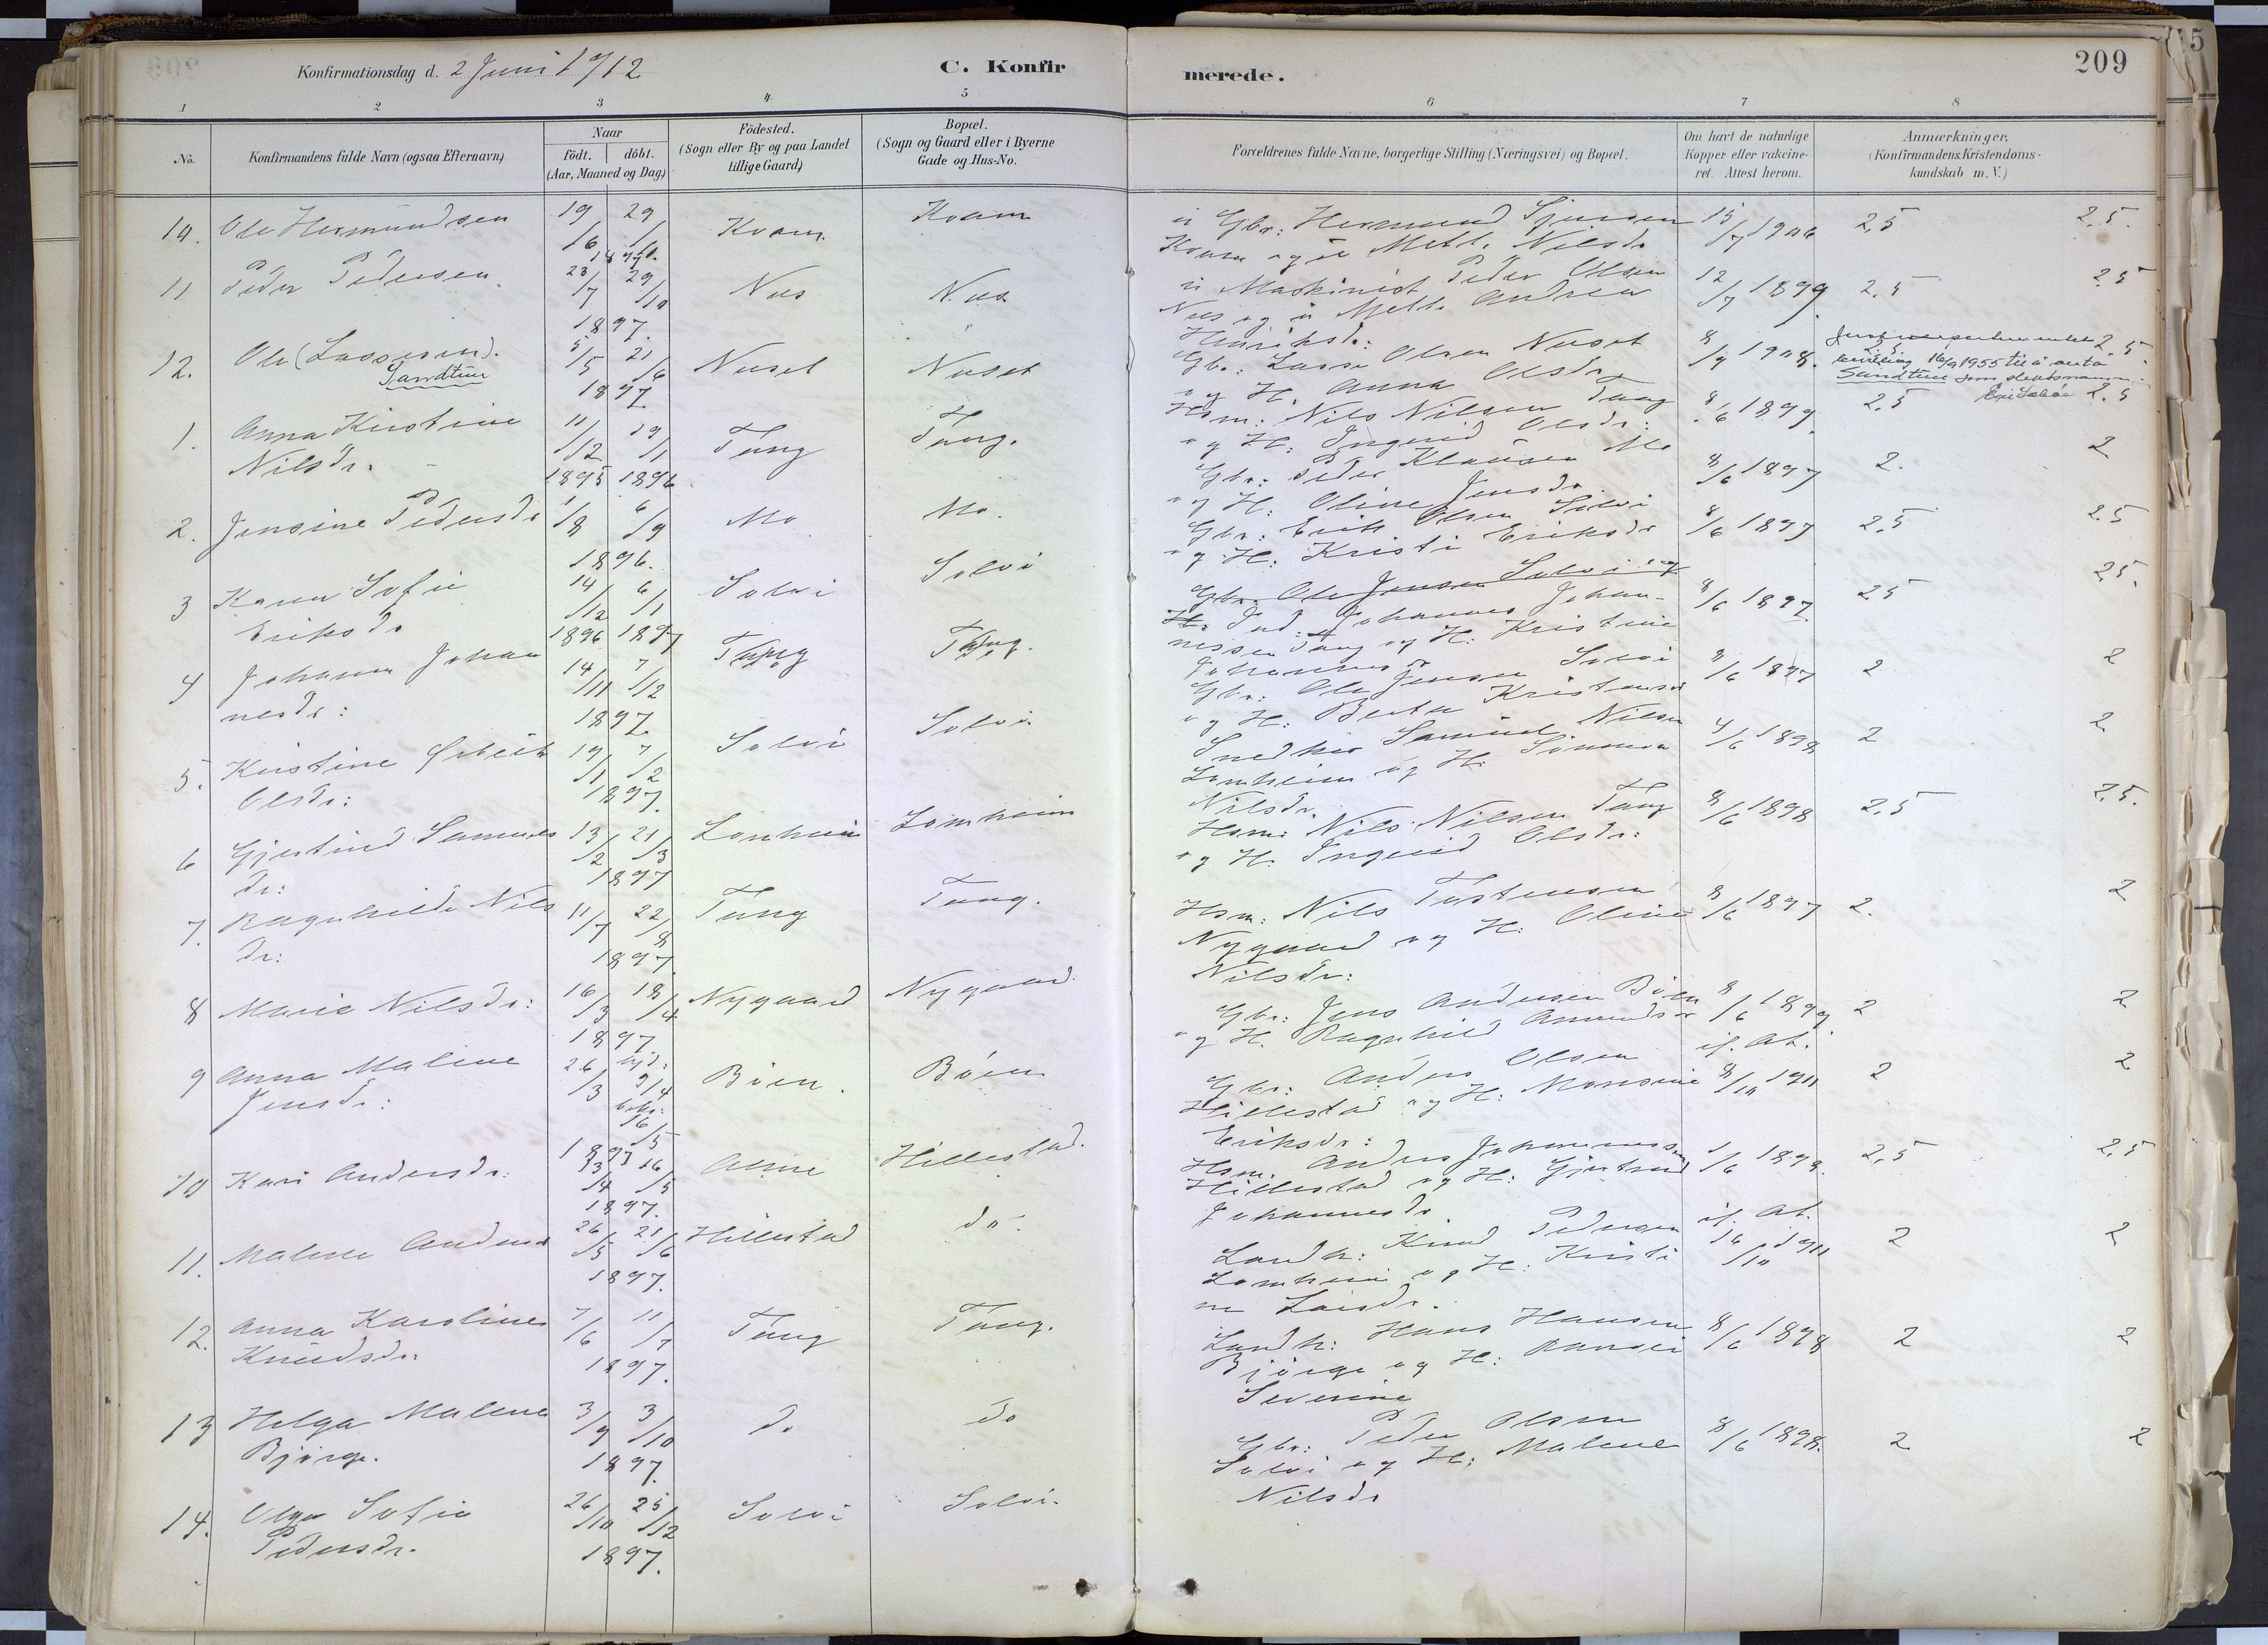 Konfirmationsdag d. 2 Juni 1912
C. Konfirmerede.
209
1 2 3 4. 5 6 7 8
No.
Konfirmandens fulde Navn (ogsaa Efternavn)
Naar
födt. döbt.
(Aar, Maaned og Dag)
Födested.
(Sogn eller By og paa Landet
tillige Gaard)
Bopæl.
(Sogn og Gaard eller i Byerne
Gade og Hus-No.
Forældrenes fulde Navne, borgerlige Stilling (Næringsvei) og Bopæl.
Om havt de naturlige
Kopper eller vakcine-
ret. Attest herom.
Anmærkninger,
(Konfirmandens Kristendoms-
kundskab m. V.)
10. Ole Hermundsen 19/6 29/ Kvam. Kvam
Gbr: Hermund Sjursen
Kvam og Mette Nilsdr
15/7 1906 2,5 2,5.
11 Peder Pedersen 23/7 29/10 1897. Nus Nus
Maskinist Peder Olsen
Nus og Mette Andrea
Henriksdr:
12/7 1899. 2,5 2,5
12. Ole (Lassesen). Sandtun 5/5 21/6 1897. Nuset Nuset
Gbr: Lasse Olsen Nuset
og H. Anna Olsdr.
8/9 1908. 2,5 2,5.
bevilling 16/9 1955 til å anta
Sandtun som slektsnamn.
1. Anna Kirstine
Nilsdr. 11/12 19/1 1895 1896. Tang Tang.
Hsm: Nils Nilsen Tang
og H: Ingerid Olsdr:
8/6 1899. 2,5 2,5
2. Jensine Pedersdr 1/8 6/9 1896. Mo Mo.
Gbr: Peder Klausen Mo
og H: Oline Jensdr.
8/6 1897 2. 2
3 Karen Sofie
Eriksdr 14/12 6/1 1896 1897 Solvi Solvi
Gbr: Erik Olsen Solvi
og H: Kristi Eriksdr
8/6 1897 2,5 2,5
4 Johanna Johan
nesdr: 14/11 7/12 1897. Tang Tang.
Gbr: Ole Jensen Solvi og
H: Johannes Johan-
nissen Tang og H: Kristine
Johannesdr
8/6 1897. 2,5 2,5.
5. Kristine
Olsdr: 19/1 7/2 1897. Solvi Solvi
Gbr: Ole Jensen Solvi
og H: Berta Kristensdr
8/6 1897 2 2
6 Gjertrud Samuels
dr: 13/2 21/3 1897 Lomheim Lomheim
Snedker Samuel Nilsen
Lomheim og H: Simona
Nilsdr.
4/6 1898 2 2
7. Ragnhilde Nils
dr: 11/7 22/8 1897. Tang Tang.
Hsm: Nils Nilsen Tang
og H: Ingerid Olsdr:
8/6 1898 2,5 2,5.
8 Marie Nilsdr: 16/3 18/4 1897 Nygaard Nygaard.
Hsm: Nils Tostensen
Nygaard og H: Oline
Nilsdr:
8/6 1897 2. 2
9 Anna Malene
Jensdr: 26/3 hjd: 9/4 16/5 1897 Böen. Böen
Gbr: Jens Andersen Böen
og H. Ragnhild Amundsdr
8/6 1899. 2 2
10 Kari Andersdr: 13/4 16/5 1897. Alme Hillestad.
Gbr: Anders Olsen
Hillestad og H: Monsine
Eriksdr:
if. At. 8/10 1911 2 2
11. Malene Andersdr 26/5 21/6 1897. Hillestad do.
Hsm. Anders Johannessen
Hillestad og H: Gjertrud
Johannesdr.
1/6 1898. 2,5 2,5
12. Anna Karoline
Knudsdr. 7/6 11/7 1897. Tang Tang.
Landh: Knud Pedersen
Lomheim og H: Kristi
ne Larsdr.
if. At. 16/10 1911 2 2
13 Helga Malene
Bjørge. 3/9 3/10 1897. do do
Landh: Hans Hansen
Bjørge og H: Ranvei
Severine
8/6 1898 2 2
14. Olga Sofie
Pedersdr. 26/10 25/12 1897. Solvi Solvi.
Gbr: Peder Olsen
Solvi og H: Malene
Nilsdr
8/6 1898. 2 2